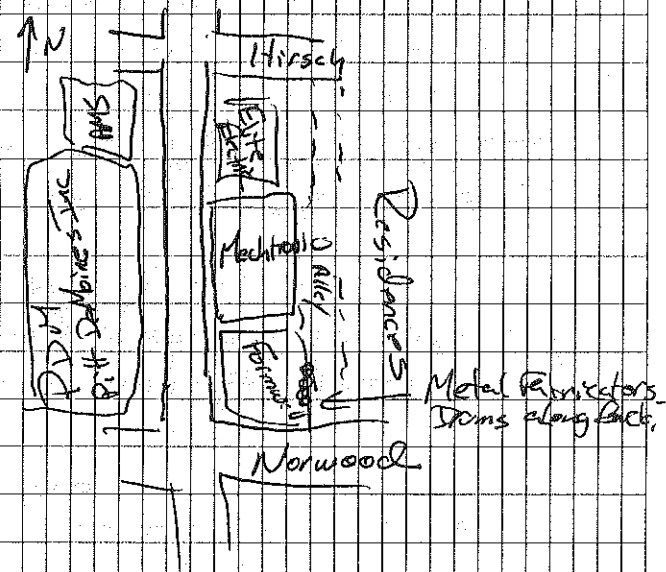 N
Hirsch
AMS
Elite
PDM
Pitt-DesMoines Inc
Mechtronic
Alley
Residences
Metal Fabricators
Drums along back.
Norwood